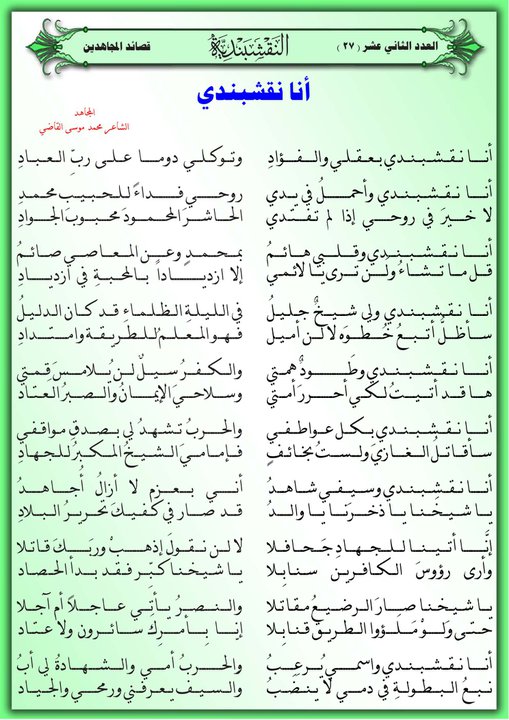 العدد الثاني عشر (٢٧) النقشبندية قصائد المجاهدين
أنا نقشبندي
المجاهد
الشاعر محمد موسى القاضي
أنا نقشبندي بعقلي والفؤادِ وتوكلي دوما على ربِّ العبادِ
أنا نقشبندي وأحملُ في يدي روحي فداءً للحبيبِ محمدِ
لا خيرَ في روحي إذا لم تفتدي الحاشرَ المحمودَ محبوبَ الجوادِ
أنا نقشبندي وقلبي هائمُ بمحمدٍ وعن المعاصي صائمُ
قل ما تشاءُ ولن ترى يا لائمي إلا ازدياداً بالمحبة في ازديادِ
أنا نقشبندي ولي شيخٌ جليلُ في الليلةِ الظلماءِ قد كان الدليلُ
سأظلُّ أتبعُ خُطوَه لا لن أميل فهو المعلمُ للطريقة وامتدادِ
أنا نقشبندي وطَودٌ همتي والكفرُ سيلٌ لن يُلامسَ قِمتي
ها قد أتيتُ لكي أحررَ أمتي وسلاحيَ الإيمانُ والصبرُ العتادِ
أنا نقشبندي بكل عواطفي والحربُ تشهدُ لي بصدقِ مواقفي
سأقاتلُ الغازيَ ولستُ بخائفٍ فإمامي الشيخُ المكبرُ للجهادِ
أنا نقشبندي وسيفي شاهدُ أني بعزمٍ لا أزالُ أُجاهدُ
يا شيخنا يا ذخرَنا يا والدُ قد صار في كفيكَ تحريرُ البلادِ
إنَّا أتينا للجهادِ جَحافلا لا لن نقولَ إذهبْ وربَكَ قاتلا
وأرى رؤوسَ الكافرينَ سنابلا يا شيخنا كبّر فقد بدأ الحصاد
يا شيخنا صارَ الرضيعُ مقاتلا والنصرُ يأتي عاجلاً أم آجلا
حتى ولوْ ملؤوا الطريقَ قنابلا إنا بأمركَ سائرون ولا عتاد
أنا نقشبندي واسمي يُرعِبُ والحربُ أمي والشهادةُ لي أبُ
نبعُ البطولةِ في دمي لا ينضَبُ والسيف يعرفني ورمحي والجياد